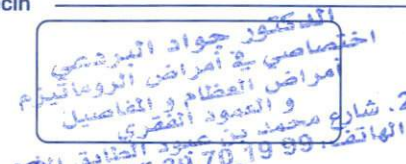 cin
الدكتور جواد البردعي
اختصاصي في أمراض الروماتيزم
أمراض العظام و المفاصيل
و العمود الفقري
2. شارع محمد بن عبود الطابق
الهاتف: 99 19 70